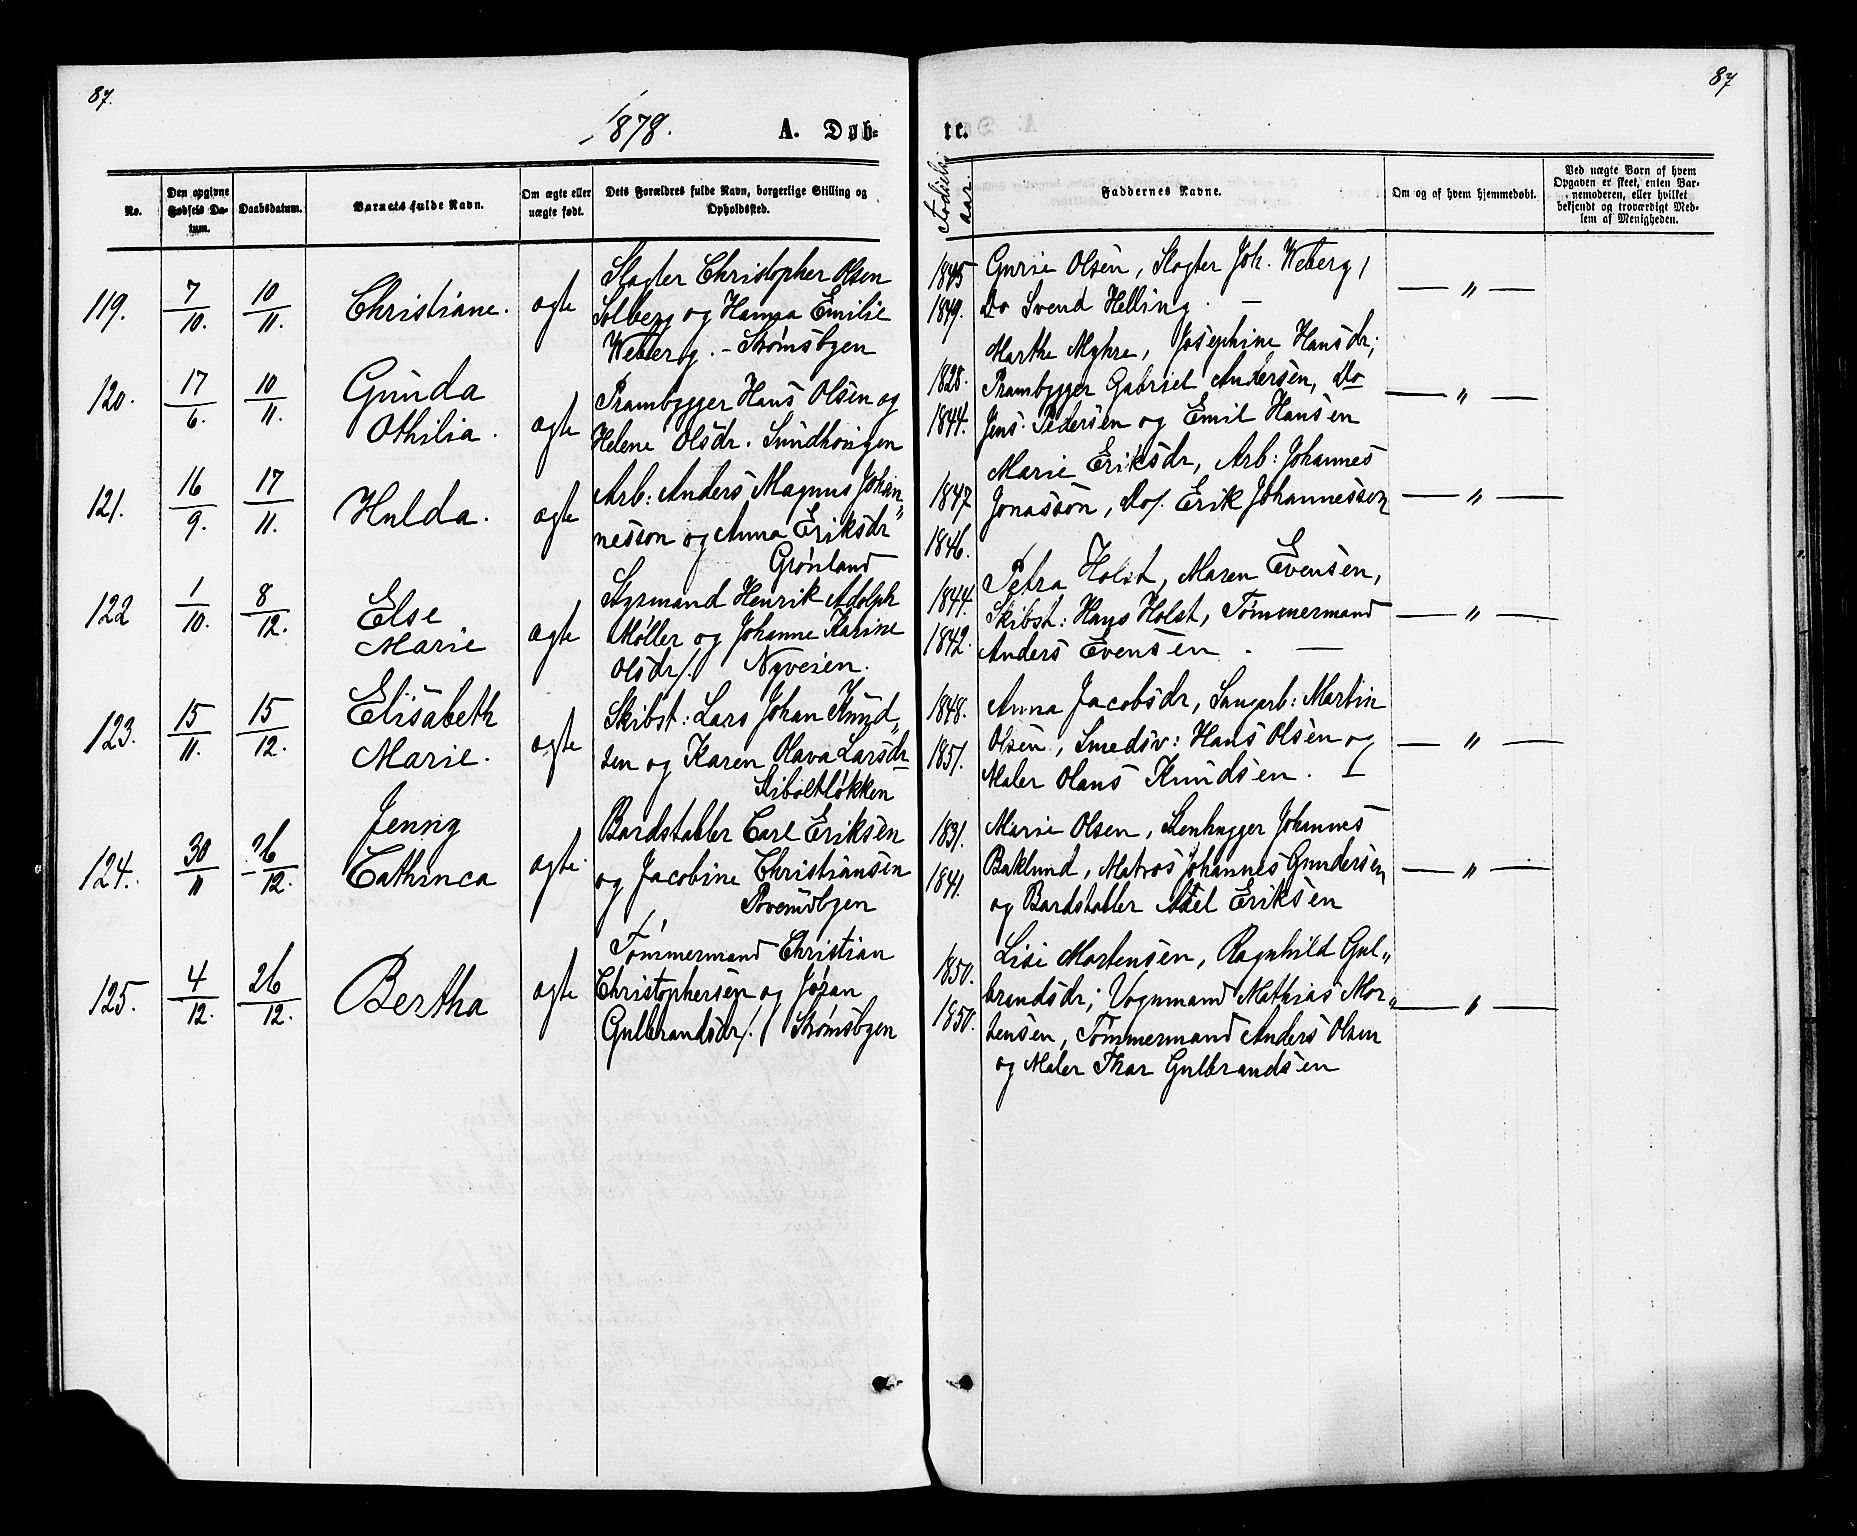 87.
87
1878. A. Døb-
te.
No.
Den opgivne Fødsels Da-tum.
Daabsdatum.
Barnets fulde Navn.
Om ægte eller uægte født.
Dets Forældres fulde Navn, borgerlige Stilling og Opholdssted.
Fødsels aar.
Faddernes Navne.
Om og af hvem hjemmedøbt.
Ved uægte Børn af hvem
Opgaven er skeet, enten Bar-
nemoderen, eller hvilket
bekjendt og troværdigt Med-
lem af Menigheden.
119. 7/10. 10/11. Christiane. ægte
Slagter Christopher Olsen
Solberg og Hanna Emilie
Weberg. - Strømsbyen
1845
1849.
Gurie Olsen, Slagter Joh. Weberg,
Do Svend Helling. —
— " —
120. 17/6. 10/11. Gunda
Othilia. ægte
Prambygger Hans Olsen og
Helene Olsdr. Sundhougen
1828.
1844.
Marthe Myhre, Josephine Hansdr;
Prambygger Gabriel Andersen, Do
Jens Pedersen og Emil Hansen
— " —
121. 16/9. 17/11. Hulda. ægte
Arb: Anders Magnus Johan„
nesson og Anna Eriksdr"
Grønland
1847
1846.
Marie Eriksdr, Arb: Johannes
Jonasson, Do/. Erik Johannesson
— " —
122 1/10. 8/12. Else
Marie ægte
Styrmand Henrik Adolph
Møller og Johanne Karine
Olsdr/. Nyveien.
1844.
1842.
Petra Holst, Maren Evensen,
Skibst: Hans Holst, Tømmermand
Anders Evensen. —
— " —
123. 15/11. 15/12. Elisabeth
Marie. ægte
Skibst: Lars Johan Knud„
sen og Karen Olava Larsdr
Siboltløkken
1848.
1851.
Anna Jacobsdr, Saugarb: Martin
Olsen, Smedsv: Hans Olsen og
Maler Olaus Knudsen. —
— " —
124. 30/11 26/12. Jenny
Cathinca ægte
Bordstabler Carl Eriksen
og Jacobine Christiansen
1831.
1841.
Marie Olsen, Stenhugger Johannes
Baklund, Matros Johannes Gundersen
og Bordstabler Axel Eriksen
— " —
125. 4/12. 26/12. Bertha ægte
Tømmermand Christian
Christophersen og Jøran
Gulbrandsdr/. Strømsbyen
1850.
1850.
Lisi Mortensen, Ragnhild Gul„
brandsdr; Vognmand Mathias Mor„
tensen, Tømmermand Anders Olsen
og Maler Thar Gulbrandsen
— " —